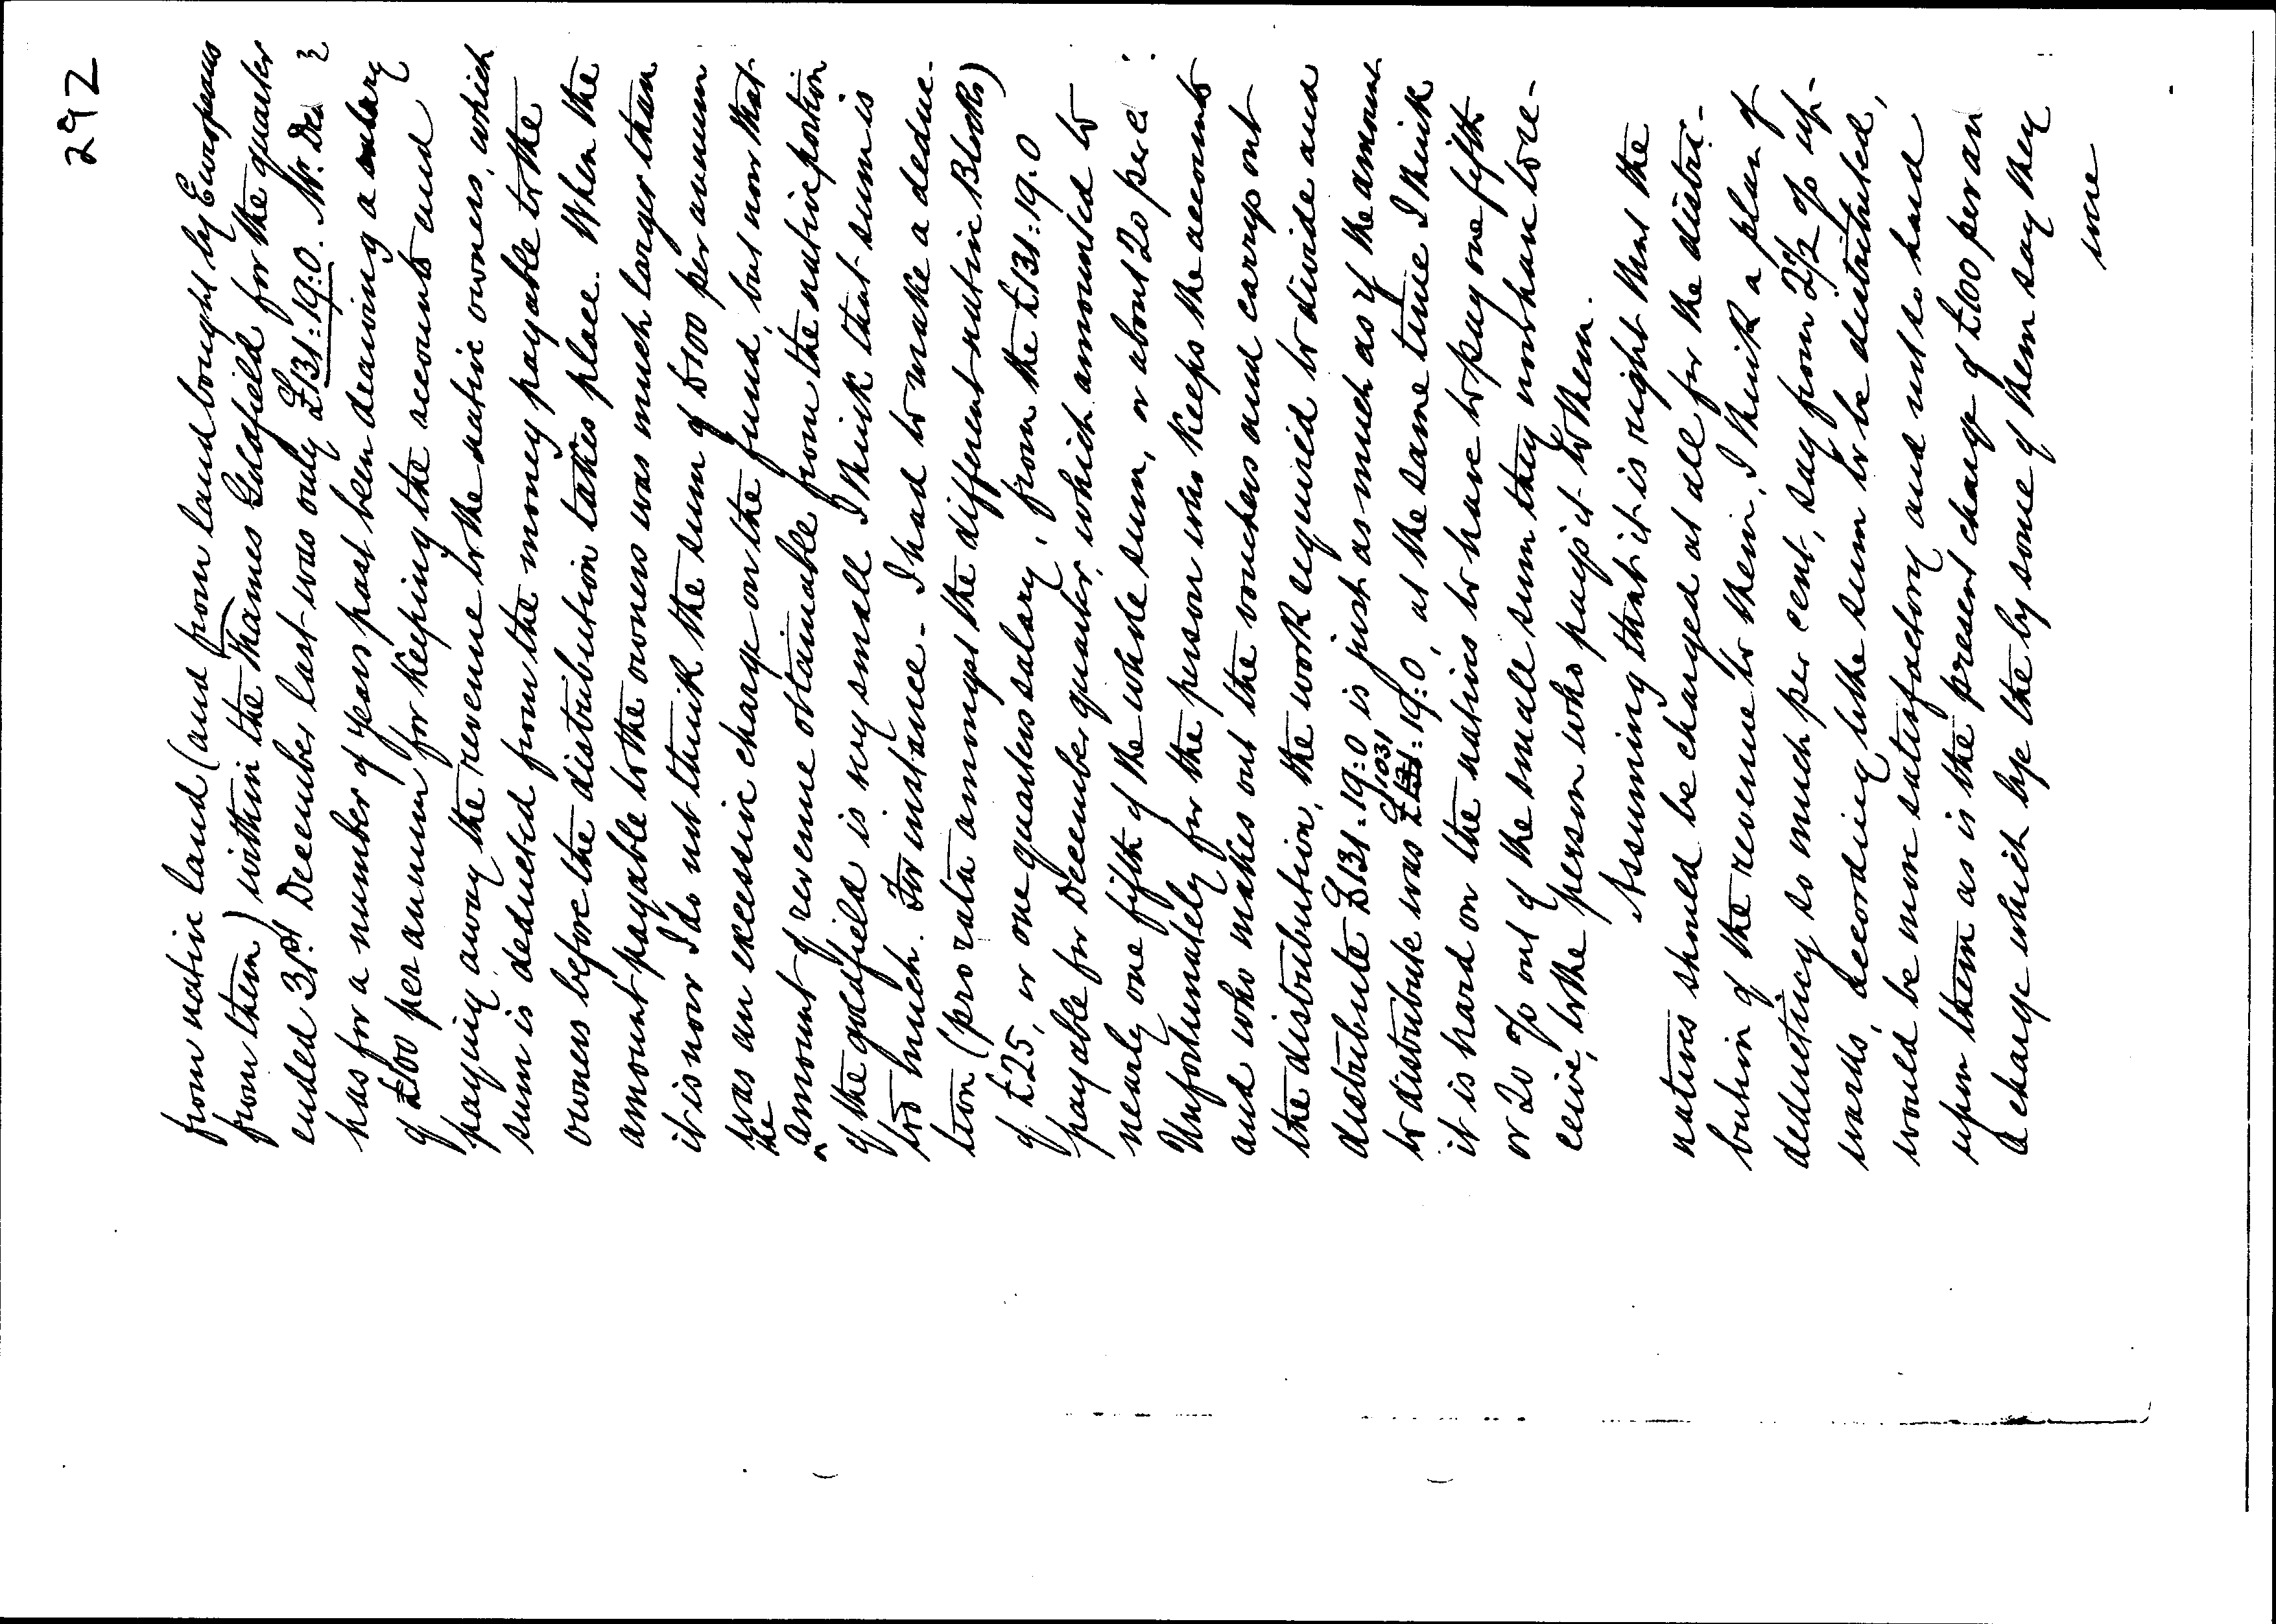 292
from native land (and from land bought by Europeans
from them) within the Thames Goldfield for the quarter
ended 31st December last was only £131:19:0. Mr.
has for a number of years past been drawing a salary
of £100 per annum for keeping the accounts and
paying away the revenue to the native owners, which
sum is deducted from the money payable to the
owners before the distribution takes place. When the
amount payable to the owners was much larger than
it is now I do not think the sum of £100 per annum
was an excessive charge on the fund, but now that
the
amount of revenue obtainable from the native portion
of the goldfield is very small I think that sum is
too much. For instance - I had to make a deduc-
tion (pro rata amongst the different native Blocks)
of £25, or one quarters salary, from the £131:19:0
payable for December quarter, which amounted to
nearly one fifth of the whole sum, or about 20 per c
Unfortunately for the person who keeps the accounts
and who makes out the vouchers and carrys out
the distribution, the work required to divide and
distribute £131:19:0 is just as much as if the amount
1031
to distribute was £131:19:0, at the same time I think
it is hard on the natives to have to pay one fifth
or 20 % out of the small sum they now have to re-
ceive, to the person who pays it to them.
Assuming that it is right that the
natives should be charged at all for the distri-
bution of the revenue to them, I think a plan of
deducting so much per cent, say from 2½ % up-
wards, according to the sum to be distributed,
would be more satisfactory and not so hard
upon them as is the present charge of £100 per an
a charge which bye the by some of them say they